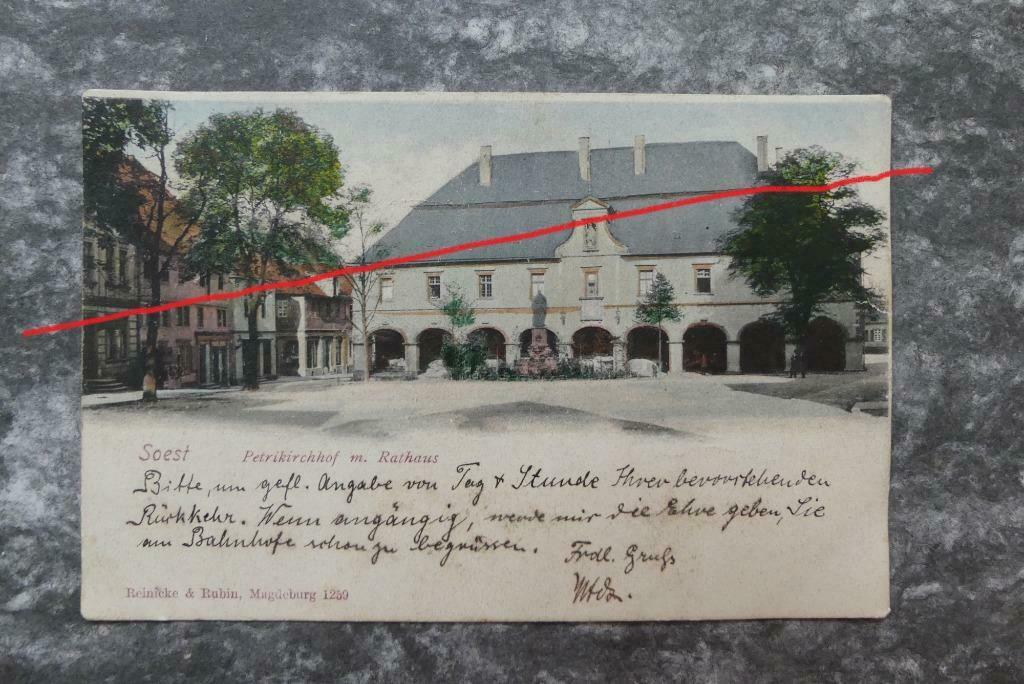 Soest Petrikirchhof m. Rathaus
Bitte, um gefl. Angabe von Tag & Stunde Ihrer bevorstehenden
Rückkehr. Wenn angängig, werde mir die Ehre geben, Sie
am Bahnhofe schon zu begrüssen. Frdl. Gruss
Reinicke & Rubin, Magdeburg 1259